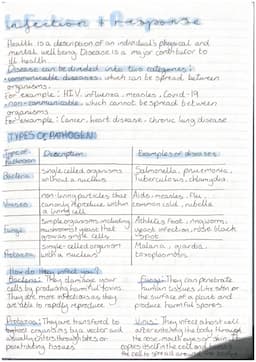 infection & response
Health is a description of an individual's physical and
mental wellbeing. Disease is a major contributor to
ill health.
Disease can be divided into two categories:
• communicable diseases, which can be spread between
organisms.
For example: HIV, influenza, measles, Covid-19
• non-communicable, which cannot be spread between
organisms.
For example: Cancer, chronic lung disease
TYPES OF PATHOGEN:
Type of Pathogen Description Examples of diseases
Bacteria Single celled organisms
without a nucleus
Salmonella, pneumonia,
tuberculosis, chlamydia
Viruses non-living particles that
can only reproduce within
a living cell
Aids, measles, flu,
common cold, rubella
Fungi Simple organisms including
mushrooms, yeast that
grow as single cells
Athlete's foot, ringworm,
yeast infection, rose black
spot
Protozoa single-celled organism
with a nucleus
Malaria, giardia,
toxoplasmosis
How do they infect you?
Bacteria: They damage your
cells by producing harmful toxins.
They are more infectious as they
are able to rapidly reproduce.
Fungi: They can penetrate
human tissues, like skin or
the surface of a plant and
produce harmful spores
Protozoa: They are transferred to
organisms by a vector and
usually enters through sites or
penetrating tissues
Virus: They infect a host cell
after entering the body through
the nose, mouth, eyes or skin. It
copies itself in the cell and
the cell to spread